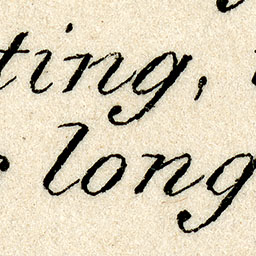 ting,
long